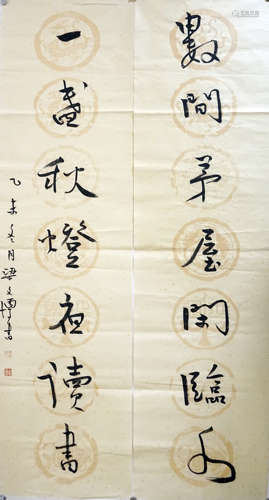 數間茅屋閑臨水
一盞秋燈夜讀書
乙未冬月梁文博書